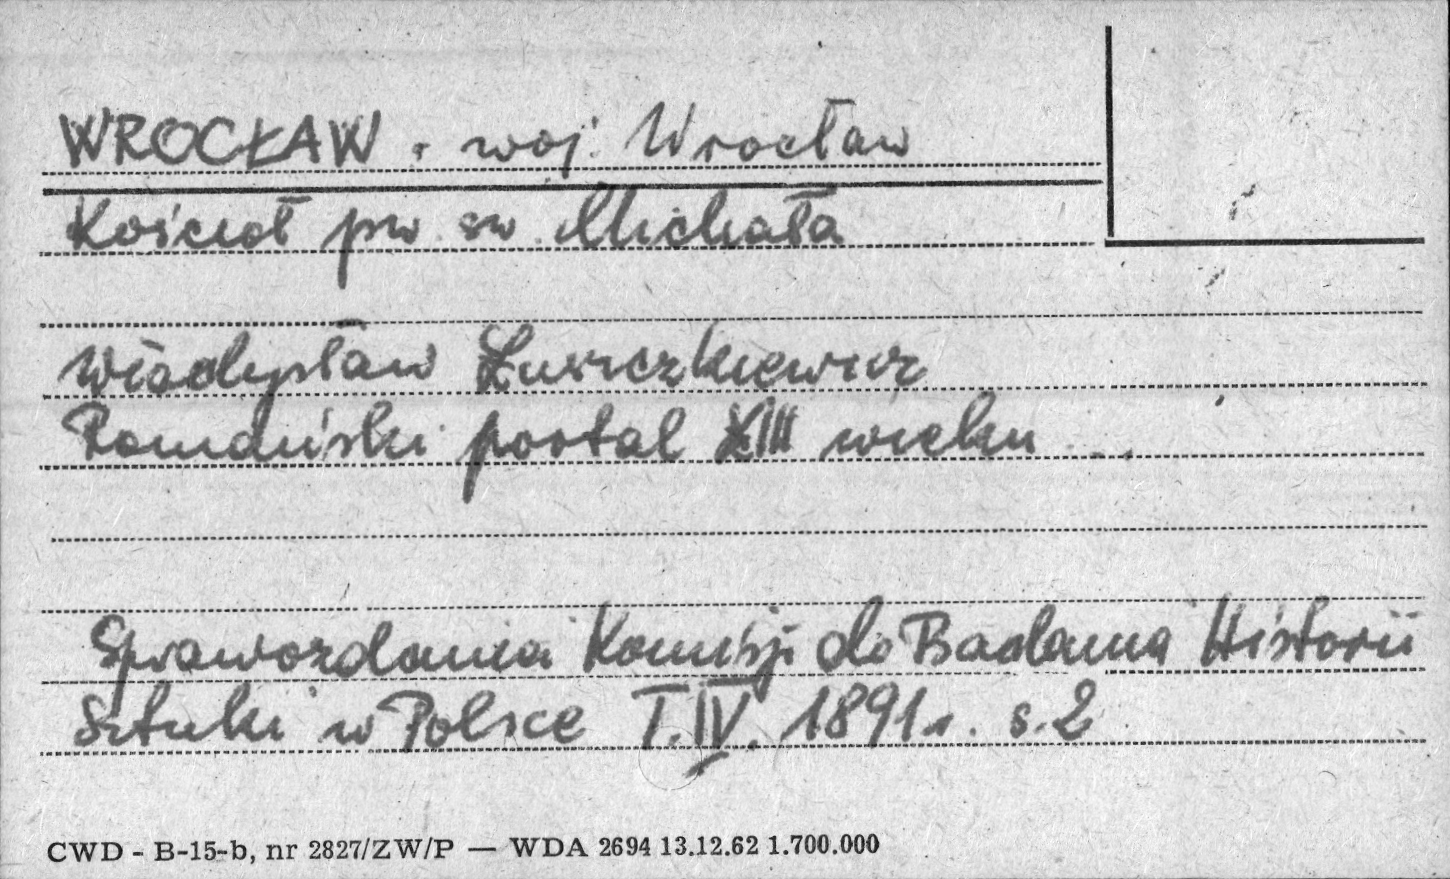 WROCŁAW. woj. Wrocław
Kościoł pw. sw. Michała
Władysław Łuszczkiewicz
Romański portal XIII wieku ...
Sprawozdania Komisji do Badania Historii
Sztuki w Polsce T.IV. 1891r. s.2
CWD - B-15-b, nr 2827/ZW/P — WDA 2694 13.12.62 1.700.000